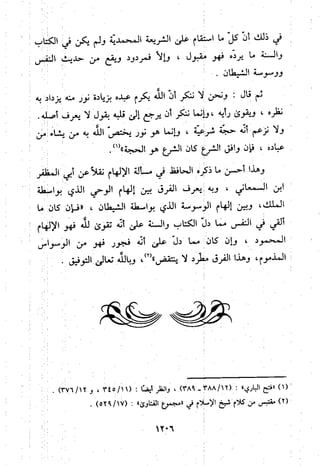 في ذلك أن كل ما استقام على الشريعة المحمدية ولم يكن في الكتاب
والسنة ما يرده فهو مقبول ، وإلا فمردود ويقع من حديث النفس
ووسوسة الشيطان .
ثم قال : ونحن لا ننكر أن الله يكرم عبده بزيادة نور منه يزداد به
نظره ، ويقوى رأيه ، وإنما ننكر أن يرجع إلى قلبه بقول لا يعرف أصله .
ولا نزعم أنه حجة شرعية ، وإنما هو نور يختص الله به من يشاء من
عباده ، فإن وافق الشرع كان الشرع هو الحجة»(١) .
وهذا أحسن ما ذكره الحافظ في مسألة الإلهام نقلاً عن أبي المظفر
ابن السمعاني ، وبه يعرف الفرق بين إلهام الوحي الذي بواسطة
الملك، وبين إلهام الوسوسة الذي بواسطة الشيطان ، «فإن كان ما
ألقي في النفس مما دل الكتاب والسنة على أنه تقوى لله فهو من الإلهام
المحمود ، وإن كان مما دل على أنه فجور فهو من الوسواس
المذموم ، وهذا الفرق مطرد لا ينتقض»(٢)، وبالله تعالى التوفيق .
(١) «فتح الباري» : (١٢/ ٣٨٨ ـ ٣٨٩) ، وانظر أيضًا : (١١/ ٣٤٥ ، و ١٢/ ٣٧٦) .
(٢) مقتبس من كلام شيخ الإسلام في «مجموع الفتاوى» : (١٧/ ٥٢٩) .
١٢٠٦